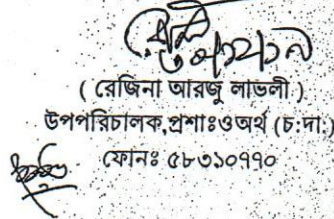 ( রেজিনা আরজু লাভলী )
উপপরিচালক,প্রশাঃওঅর্থ (চ:দা:)
ফোনঃ ৫৮৩১০৭৭০